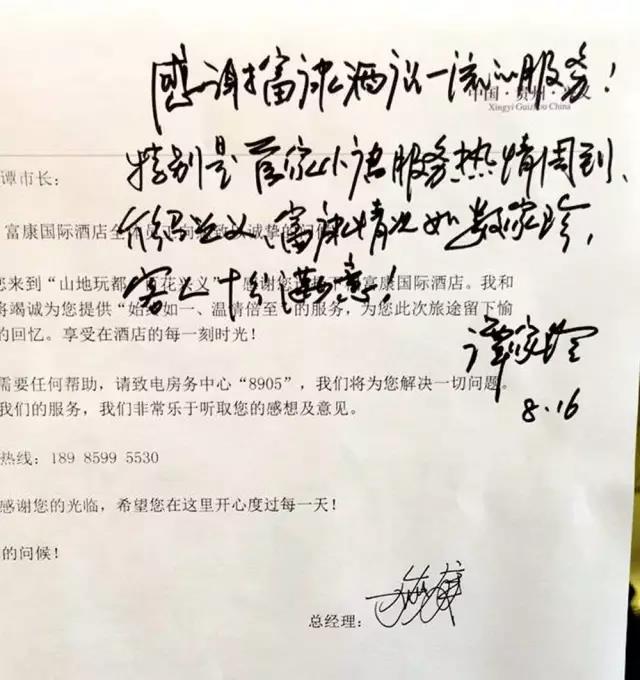 感谢富康酒店一流的服务！
中国·贵州·兴义
Xingyi Guizhou China
特别是管家小唐服务热情周到、
谭市长：
介绍兴义、富康情况如数家珍，
富康国际酒店全体员工向您致以诚挚的问候
您来到“山地玩都、百花兴义”，感谢您选择下榻富康国际酒店。我和
客人十分满意！
将竭诚为您提供“始终如一、温情倍至”的服务，为您此次旅途留下愉
的回忆。享受在酒店的每一刻时光！
谭家玲
8.16
需要任何帮助，请致电房务中心“8905”，我们将为您解决一切问题。
我们的服务，我们非常乐于听取您的感想及意见。
热线：189 8599 5530
感谢您的光临，希望您在这里开心度过每一天！
的问候！
总经理：